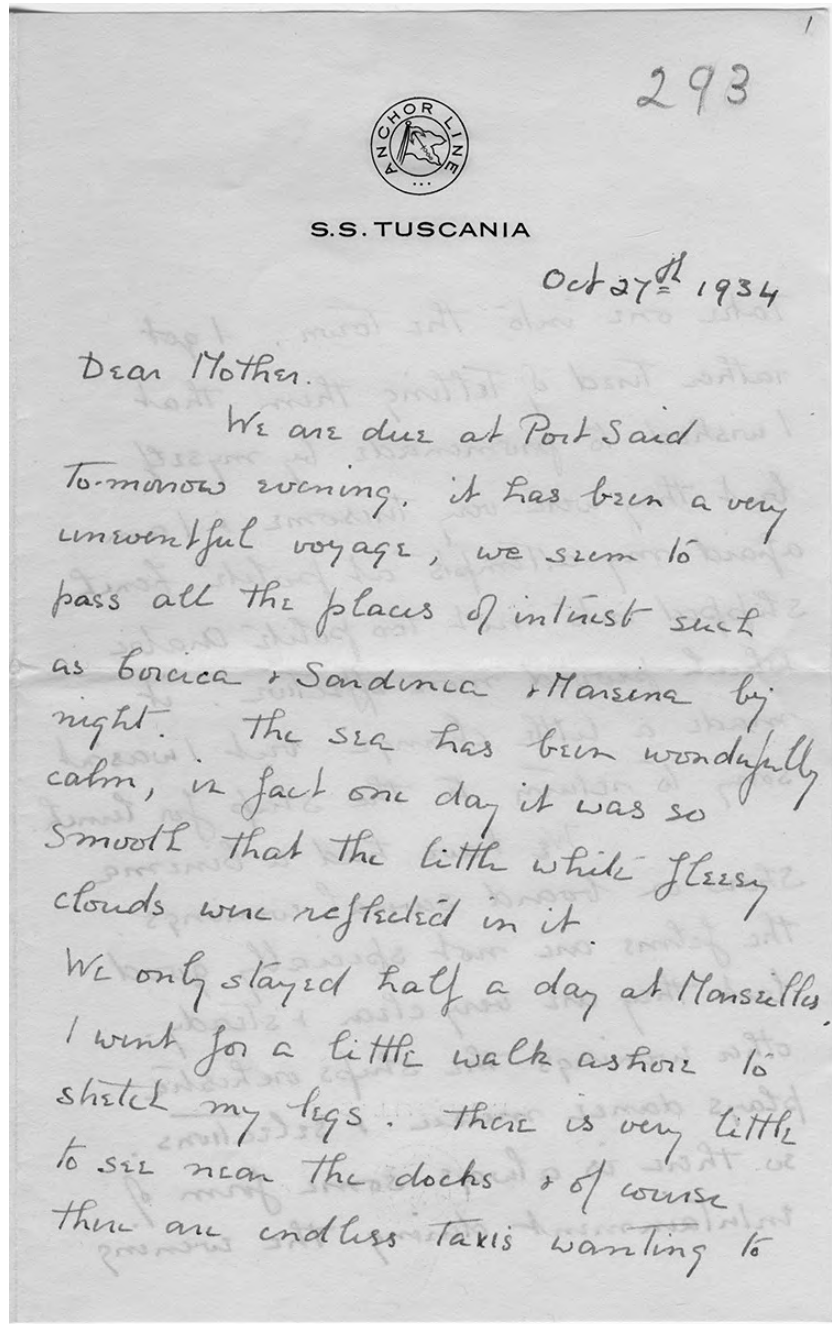 1
293
ANCHOR LINE
S.S. TUSCANIA
Oct 27th 1934
Dear Mother.
We are due at Port Said
To-morrow evening. it has been a very
uneventful voyage, we seem to
pass all the places of interest such
as Corcica & Sardinia & Messina by
night. The sea has been wonderfully
calm, in fact one day it was so
smooth that the little white fleesy
clouds were reflected in it
We only stayed half a day at Marseilles,
I went for a little walk ashore to
stretch my legs. there is very little
to see near the docks & of course
there are endless Taxis wanting to